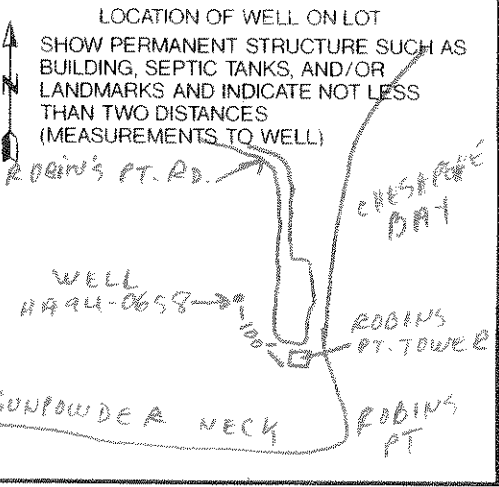 LOCATION OF WELL ON LOT
SHOW PERMANENT STRUCTURE SUCH AS
BUILDING, SEPTIC TANKS, AND/OR
LANDMARKS AND INDICATE NOT LESS
THAN TWO DISTANCES
(MEASUREMENTS TO WELL)
N
ROBIN'S PT. RD.
CHESAPEAKE
BAY
WELL
HA94-0658
100'
ROBINS
PT. TOWER
GUNPOWDER NECK
ROBINS
PT